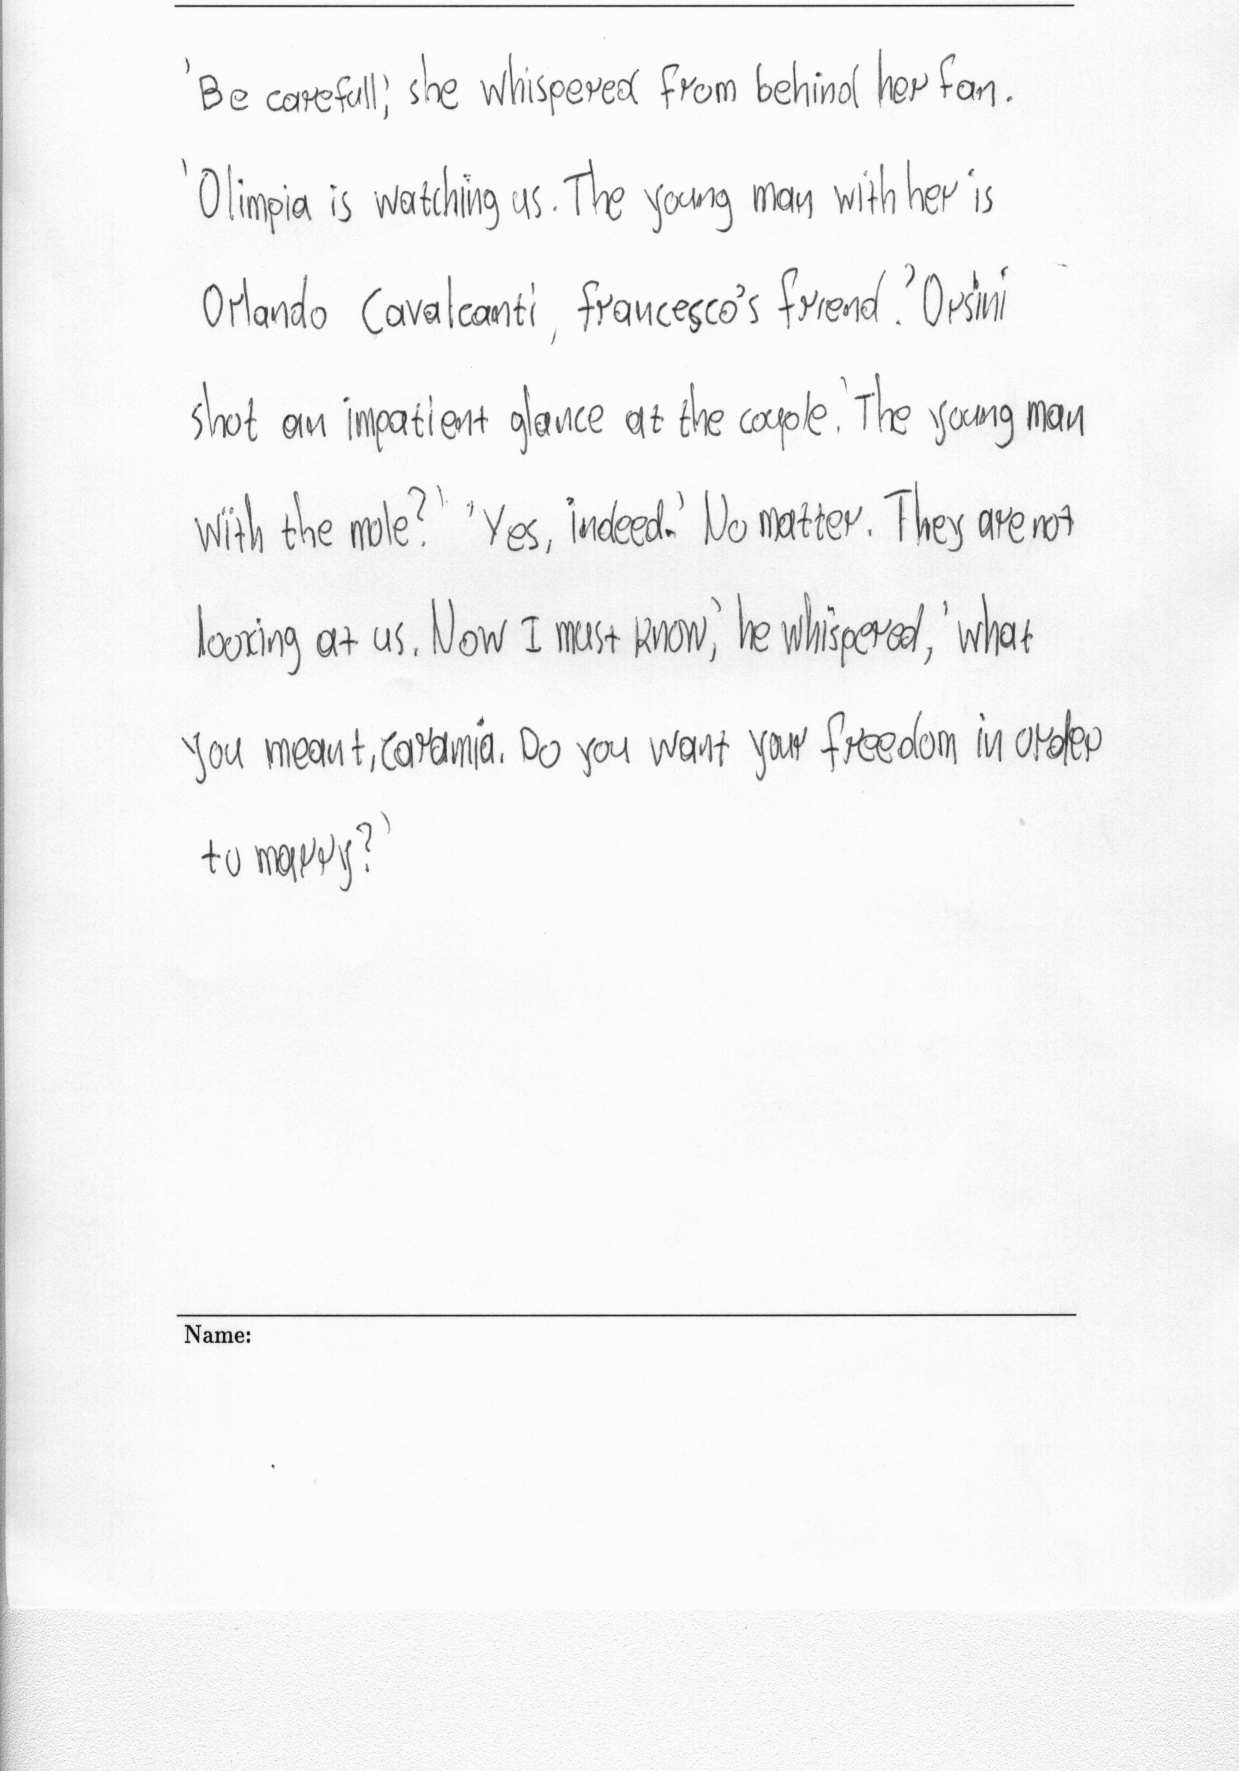 'Be carefull,' she whispered from behind her fan.
'Olimpia is watching us. The young man with her is
Orlando Cavalcanti, francesco's friend.' Orsini
shot an impatient glance at the couple. 'The young man
with the mole?' 'Yes, indeed.' No matter. They are not
looking at us. Now I must know,' he whispered, 'what
you meant, caramia. Do you want your freedom in order
to marry?'
Name: